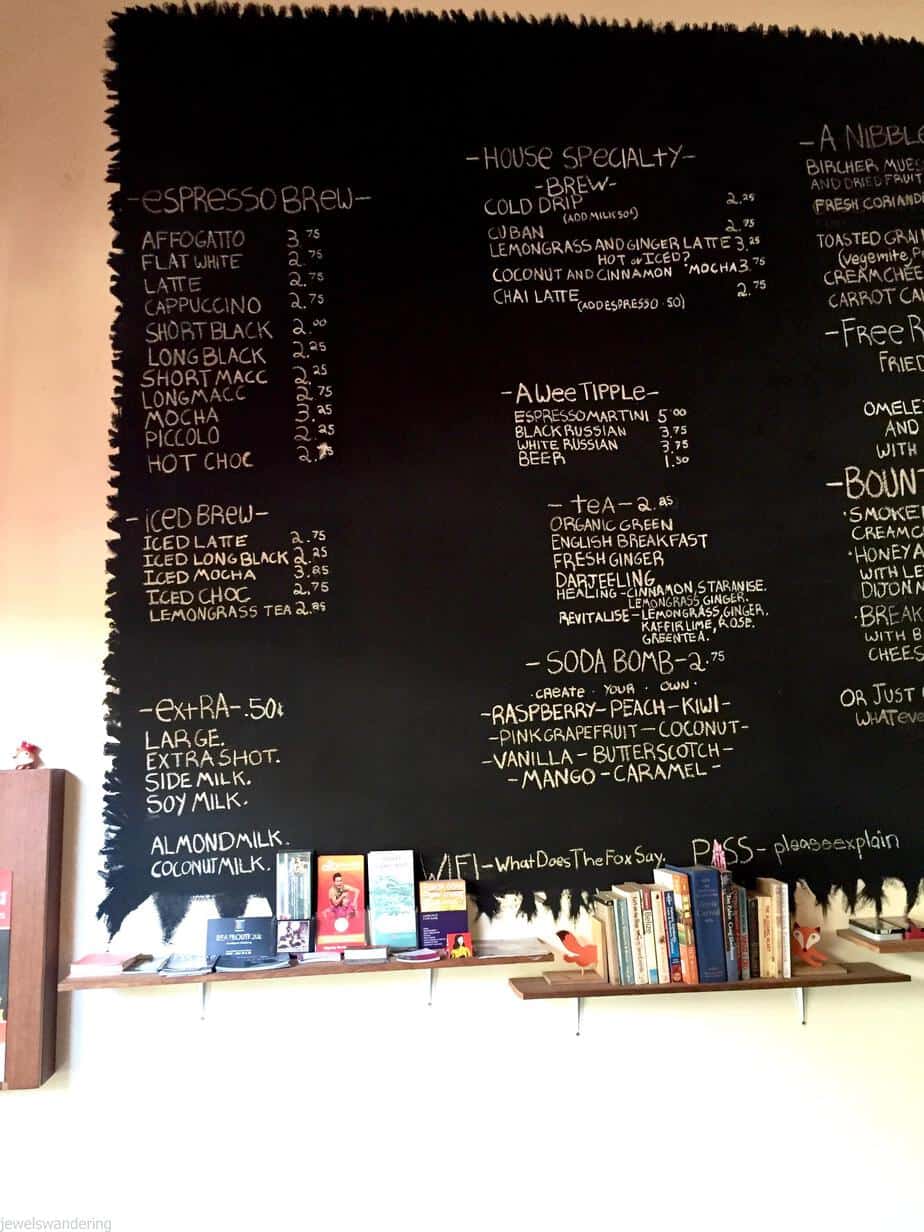 -espresso Brew-
AFFOGATTO 3.75
FLAT WHITE 2.75
LATTE 2.75
CAPPUCCINO 2.75
SHORT BLACK 2.00
LONG BLACK 2.25
SHORT MACC 2.25
LONGMACC 2.75
MOCHA 3.25
PICCOLO 2.25
HOT CHOC 2.75
-iced BREW-
ICED LATTE 2.75
ICED LONG BLACK 2.25
ICED MOCHA 3.25
ICED CHOC 2.75
LEMONGRASS TEA 2.25
-extRA-.50¢
LARGE.
EXTRA SHOT.
SIDE MILK.
SOY MILK.
ALMOND MILK.
COCONUT MILK.
-HOUSE SPECIALTY-
-BREW-
COLD DRIP 2.25
(ADD MILK 50¢)
CUBAN 2.75
LEMONGRASS AND GINGER LATTE 3.25
HOT or ICED?
COCONUT AND CINNAMON MOCHA 3.75
CHAI LATTE 2.75
(ADD ESPRESSO .50)
-A Wee TIPPLE-
ESPRESSO MARTINI 5.00
BLACK RUSSIAN 3.75
WHITE RUSSIAN 3.75
BEER 1.50
-teA-2.25
ORGANIC GREEN
ENGLISH BREAKFAST
FRESH GINGER
DARJEELING
HEALING-CINNAMON, STARANISE.
LEMONGRASS, GINGER.
REVITALISE-LEMONGRASS, GINGER,
KAFFIR LIME, ROSE.
GREENTEA.
-SODA BOMB-2.75
·CREATE · YOUR · OWN·
-RASPBERRY-PEACH-KIWI-
-PINK GRAPEFRUIT-COCONUT-
-VANILLA-BUTTERSCOTCH-
-MANGO-CARAMEL-
WIFI-WhatDoesTheFoxSay. PASS-pleaseexplain
-A NIBBLE
BIRCHER MUES
AND DRIED FRUIT
(FRESH CORIAND
TOASTED GRAI
(vegemite, P
CREAM CHEE
CARROT CA
-Free R
FRIED
OMELE
AND
WITH
-BOUN
·SMOKE
CREAM C
·HONEY A
WITH LE
DIJON M
·BREAK
WITH B
CHEES
OR JUST
WHATeve
jewelswandering